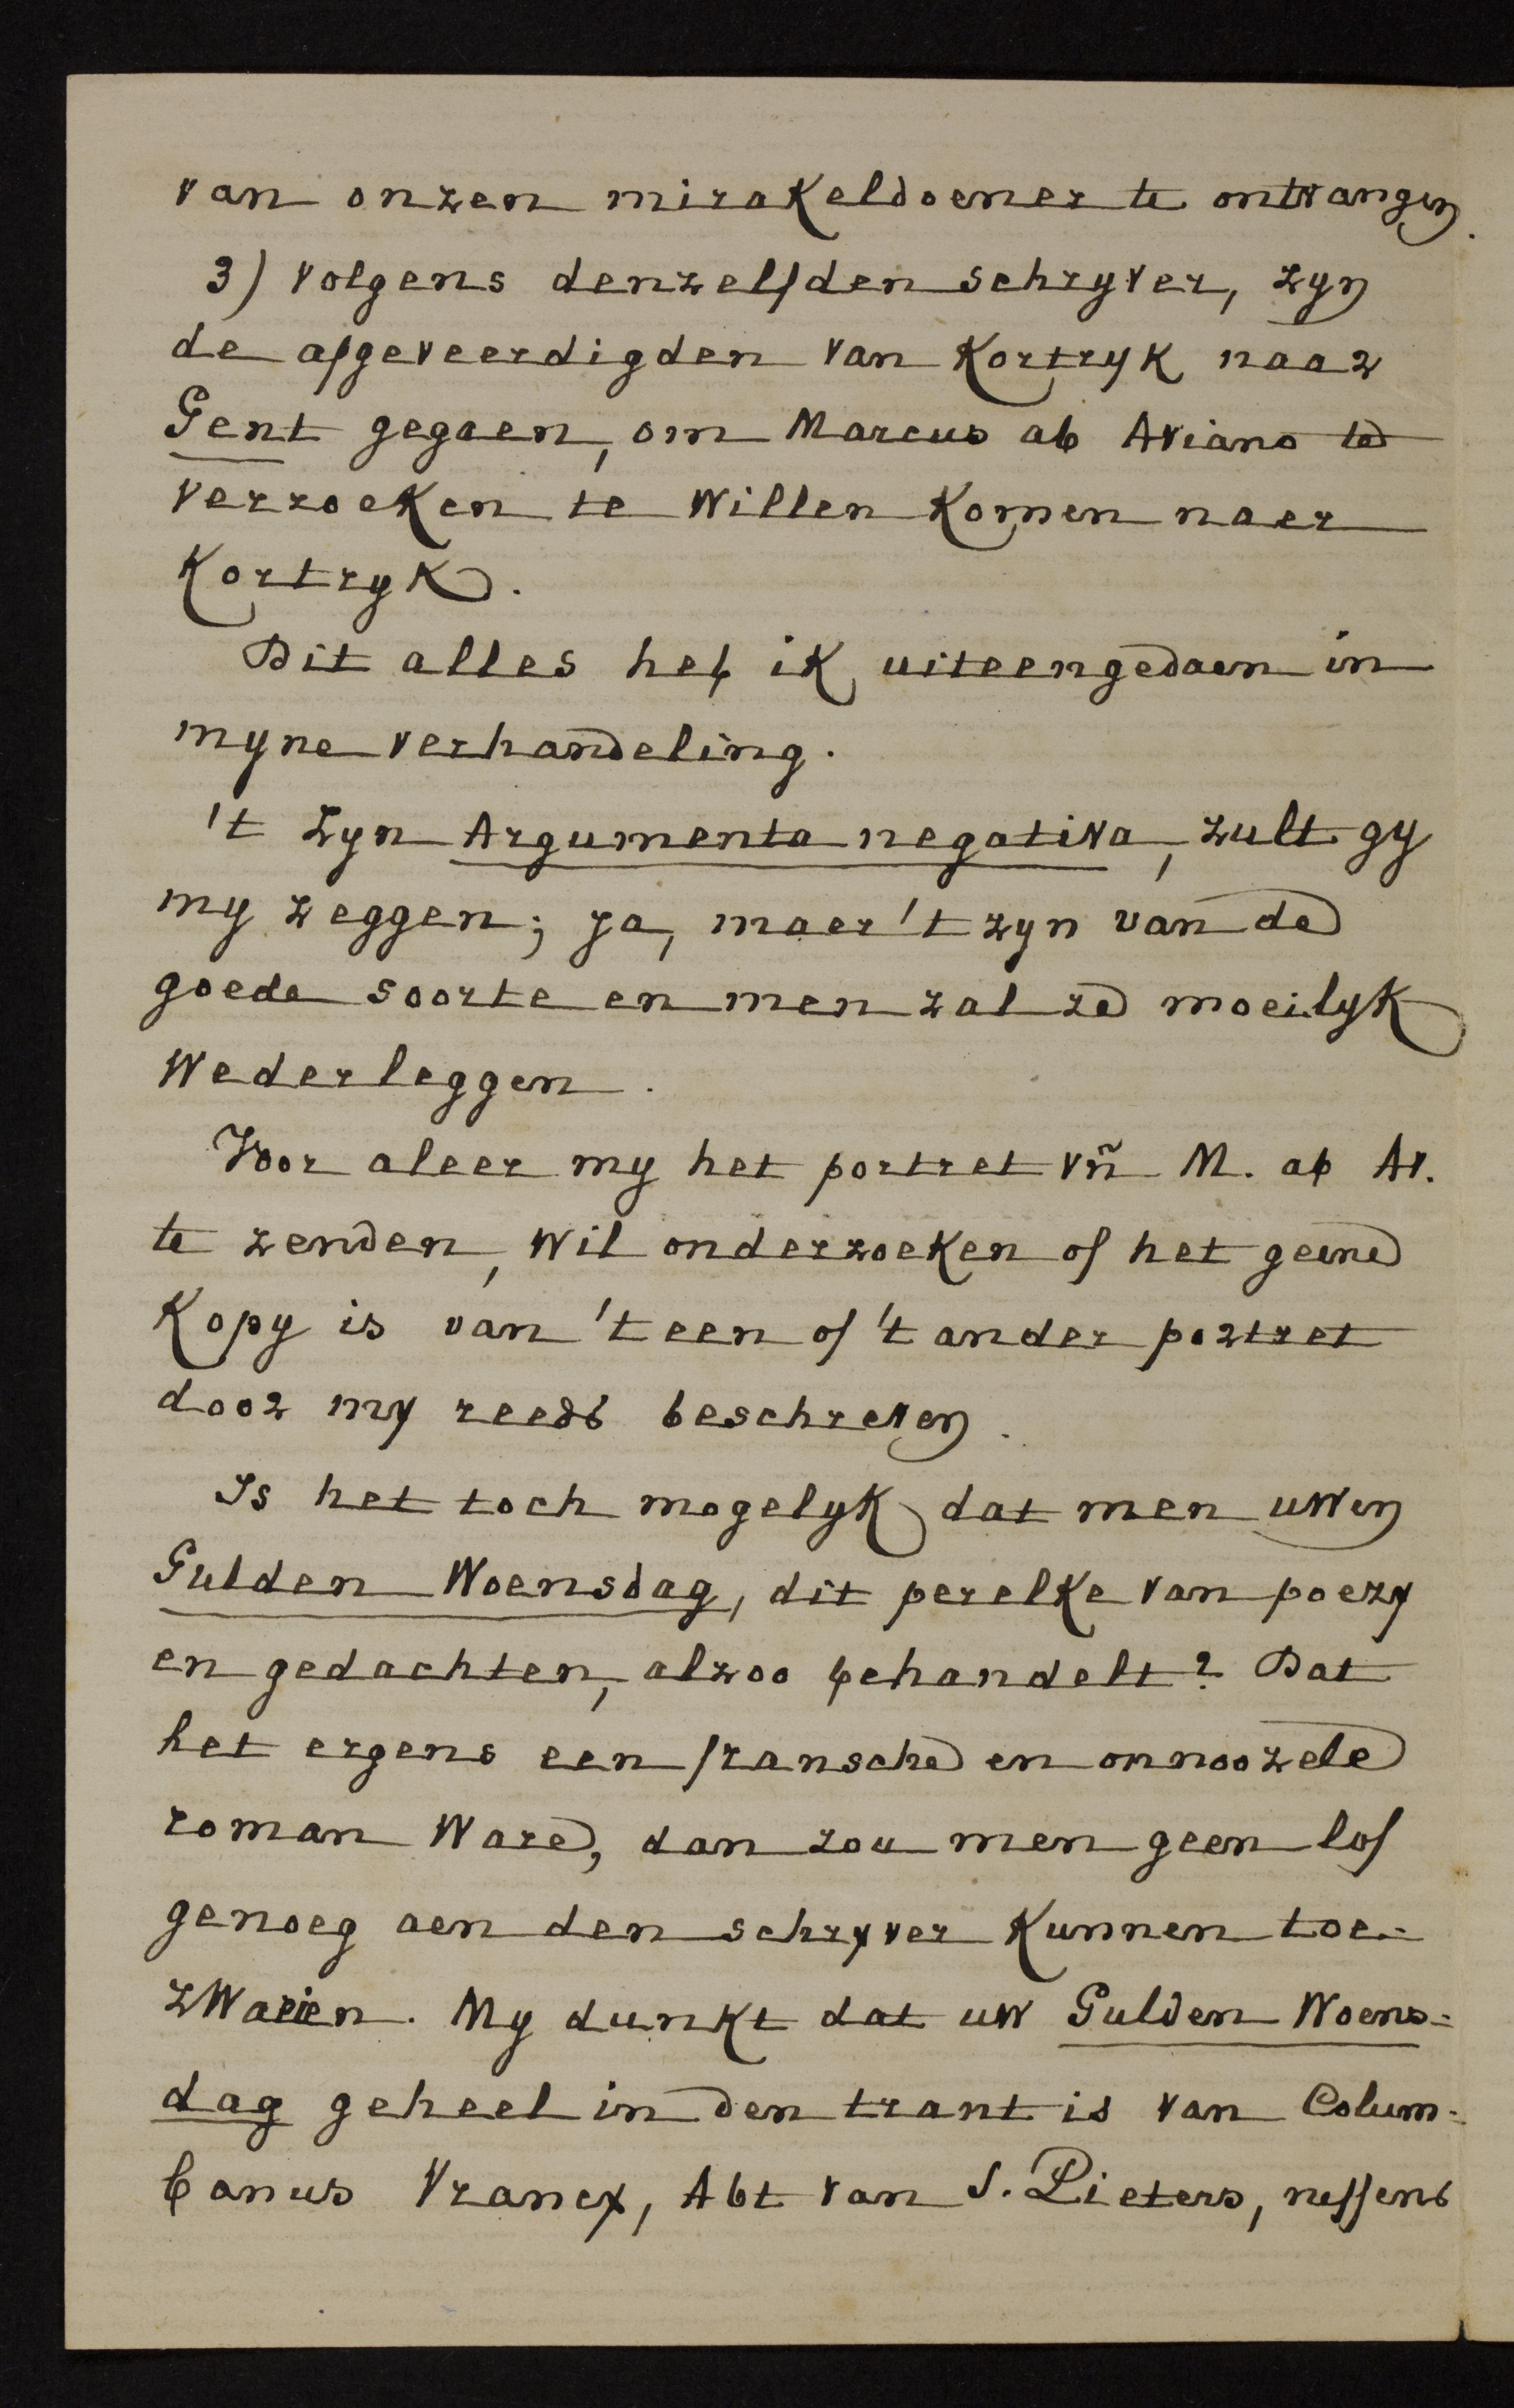 van onzen mirakeldoener te ontvangen.
3) volgens denzelfden schryver, zyn
de afgeveerdigden van Kortryk naar
Gent gegaen, om Marcus ab Aviano te
verzoeken te willen komen naer
Kortryk.
Dit alles heb ik uiteengedaen in
myne verhandeling.
't Zyn Argumenta negativa, zult gy
my zeggen; ja, maer 't zyn van de
goede soorte en men zal ze moeilyk
wederleggen.
Voor aleer my het portret vñ M. ab Av.
te zenden, wil onderzoeken of het geene
kopy is van 't een of 't ander portret
door my reeds beschreven.
Is het toch mogelyk dat men uwen
Gulden Woensdag, dit perelke van poezy
en gedachten, alzoo behandelt? Dat
het ergens een fransche en onnoozele
roman ware, dan zou men geen lof
genoeg aen den schryver kunnen toe-
zwaeien. My dunkt dat uw Gulden Woens-
dag geheel in den trant is van Colum-
banus Vrancx, Abt van S. Pieters, neffens